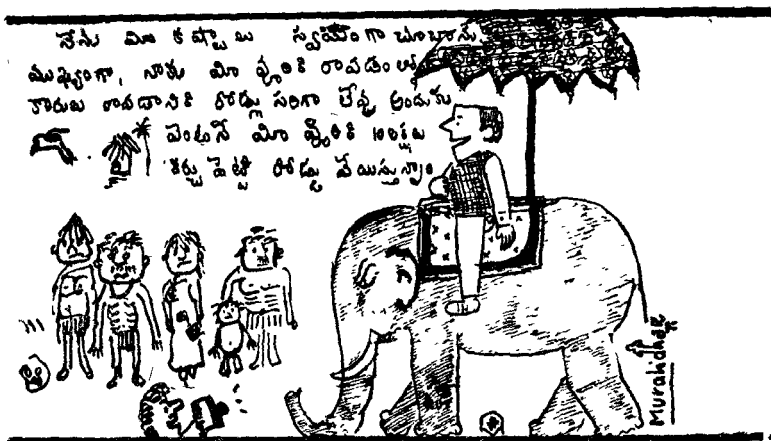 నేను మీ కష్టాలు స్వయంగా చూశాను.
ముఖ్యంగా, నాకు మీ వూరికి రావడంలో
కారుకు రావడానికి రోడ్లు సరిగా లేవు అందుకు
వెంటనే మీ వూరికి లక్షలు
ఖర్చు పెట్టి రోడ్లు వేయిస్తున్నాం
Muralidhar